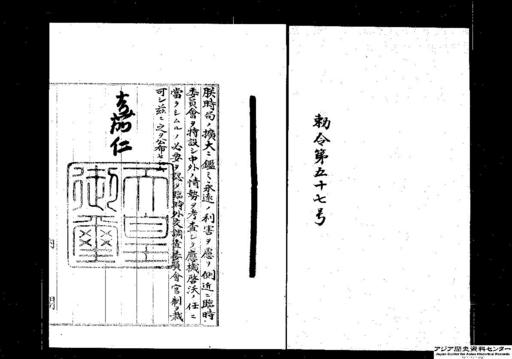 勅令第五十七号
朕時局ノ擴大ニ鑑ミ永遠ノ利害ヲ慮リ側近ニ臨時
委員會ヲ特設シ中外ノ情勢ヲ考査シ以テ應機啓沃ノ任ニ
當ラシムルノ必要ヲ認メ臨時外交調査委員會官制ヲ裁
可シ茲ニ之ヲ公布セシム
嘉仁
天皇
御璽
内閣
アジア歴史資料センター
Japan Center for Asian Historical Records